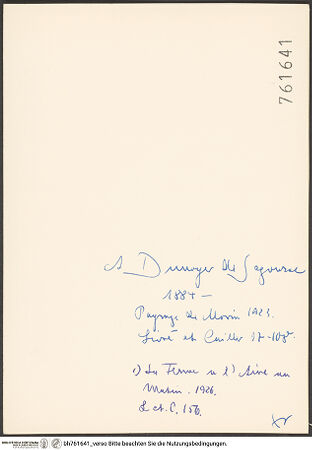 761641
A Dunoyer de Segonzac
1884 –
Paysage du Morin 1923.
Lioré et Cailler
1) La Ferme à l'Aire au
Matin. 1926.
L et C. 156.
bh761641_verso Bitte beachten Sie die Nutzungsbedingungen.